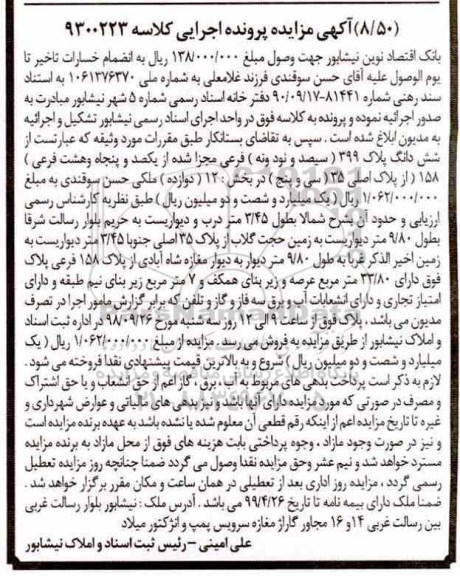 (۸/۵۰) آگهی مزایده پرونده اجرایی کلاسه ۹۳۰۰۲۲۳
بانک اقتصاد نوین نیشابور جهت وصول مبلغ ۱۳۸/۰۰۰/۰۰۰ ریال به انضمام خسارات تاخیر تا
یوم الوصول علیه آقای حسن سوقندی فرزند غلامعلی به شماره ملی ۱۰۶۱۳۷۶۳۷۰ به استناد
سند رهنی شماره ۸۱۴۴۱-۹۰/۰۹/۱۷ دفتر خانه اسناد رسمی شماره ۵ شهر نیشابور مبادرت به
صدور اجرائیه نموده و پرونده به کلاسه فوق در واحد اجرای اسناد رسمی نیشابور تشکیل و اجرائیه
به مدیون ابلاغ شده است . سپس به تقاضای بستانکار طبق مقررات مورد وثیقه که عبارتست از
شش دانگ پلاک ۳۹۹ ( سیصد و نود ونه ) فرعی مجزا شده از یکصد و پنجاه وهشت فرعی (
۱۵۸ ) از پلاک اصلی ۳۵( سی و پنج ) در بخش : ۱۲ ( دوازده ) ملکی حسن سوقندی به مبلغ
۱/۰۶۲/۰۰۰/۰۰۰ ریال ( یک میلیارد و شصت و دو میلیون ریال) طبق نظریه کارشناس رسمی
ارزیابی و حدود آن بشرح شمالا بطول ۳/۴۵ متر درب و دیواریست به حریم بلوار رسالت شرقا
بطول ۹/۸۰ متر دیواریست به زمین حجت گلاب از پلاک ۳۵ اصلی جنوبا ۳/۴۵ متر دیواریست به
زمین اخیر الذکر غربا به طول ۹/۸۰ متر دیوار به دیوار مغازه شاه آبادی از پلاک ۱۵۸ فرعی پلاک
فوق دارای ۳۳/۸۰ متر مربع عرصه و زیر بنای همکف و ۷ متر مربع زیر بنای نیم طبقه و دارای
امتیاز تجاری و دارای انشعابات آب و برق سه فاز و گاز و تلفن که برابر گزارش مامور اجرا در تصرف
مدیون می باشد ، پلاک فوق از ساعت ۹ الی ۱۲ روز سه شنبه مورخ ۹۸/۰۹/۲۶ در اداره ثبت اسناد
و املاک نیشابور از طریق مزایده به فروش می رسد . مزایده از مبلغ ۱/۰۶۲/۰۰۰/۰۰۰ ریال ( یک
میلیارد و شصت و دو میلیون ریال ) شروع و به بالاترین قیمت پیشنهادی نقدا فروخته می شود .
لازم به ذکر است پرداخت بدهی های مربوط به آب ، برق ، گاز اعم از حق انشعاب و یا حق اشتراک
و مصرف در صورتی که مورد مزایده دارای آنها باشد و نیز بدهی های مالیاتی و عوارض شهرداری و
غیره تا تاریخ مزایده اعم از اینکه رقم قطعی آن معلوم شده یا نشده باشد به عهده برنده مزایده است
و نیز در صورت وجود مازاد ، وجوه پرداختی بابت هزینه های فوق از محل مازاد به برنده مزایده
مسترد خواهد شد و نیم عشر وحق مزایده نقدا وصول می گردد ضمنا چنانچه روز مزایده تعطیل
رسمی گردد ، مزایده روز اداری بعد از تعطیلی در همان ساعت و مکان مقرر برگزار خواهد شد .
ضمنا ملک دارای بیمه نامه تا تاریخ ۹۹/۴/۲۶ می باشد . آدرس ملک : نیشابور بلوار رسالت غربی
بین رسالت غربی ۱۴ و ۱۶ مجاور گاراژ مغازه سرویس پمپ و انژکتور میلاد
علی امینی – رئیس ثبت اسناد و املاک نیشابور